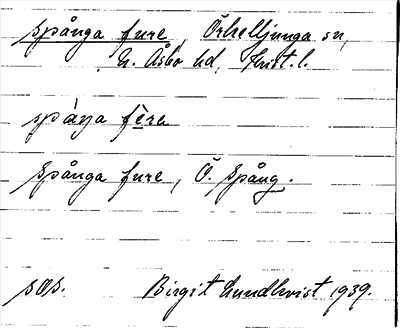 spånga fure, Örkelljunga sn,
N. Åsbo hd, Krist. l.
spåŋa fère
Spånga fure, Ö. Spång.
sos. Birgit Lundkvist 1939.